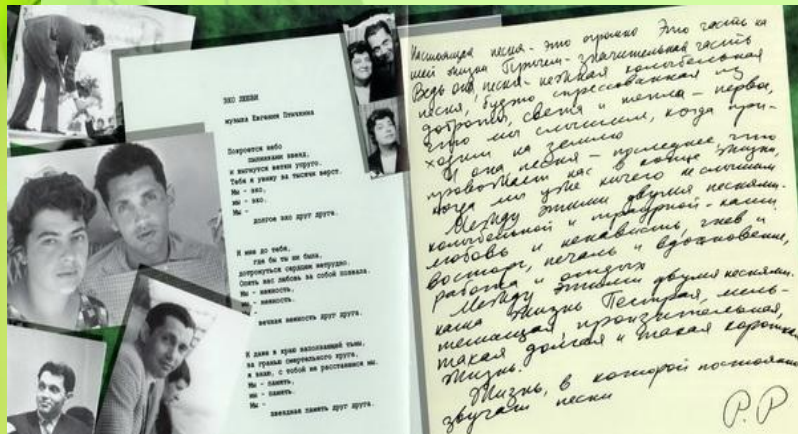 ЭХО ЛЮБВИ
музыка Евгения Птичкина
Покроется небо
пылинками звезд,
и выгнутся ветки упруго.
Тебя я увижу за тысячи верст.
Мы - эхо,
мы - эхо.
Мы -
долгое эхо друг друга.
И мне до тебя,
где бы ты ни была,
дотронуться сердцем нетрудно.
Опять нас любовь за собой позвала.
Мы - нежность,
мы - нежность.
Мы -
вечная нежность друг друга.
И даже в краю наползающей тьмы,
за гранью смертельного круга,
я знаю, с тобой не расстанемся мы.
Мы - память,
мы - память.
Мы -
звездная память друг друга.
Настоящая песня - это огромно Это часть на
шей жизни Причем - значительная часть
Ведь она, песня - нежная колыбельная
песня, будто спрессованная из
доброты, света и тепла - первое,
что мы слышим, когда при-
ходим на землю
И она песня - последнее, что
провожает нас в конце жизни,
когда мы уже ничего не слышим
Между этими двумя песнями -
колыбельной и траурной - наши
любовь и ненависть, гнев и
восторг, печаль и вдохновение,
работа и отдых
Между этими двумя песнями -
наша жизнь Пестрая, мель-
тешащая, пронзительная,
такая долгая и такая короткая
жизнь.
Жизнь, в которой постоянно
звучат песни
Р.Р